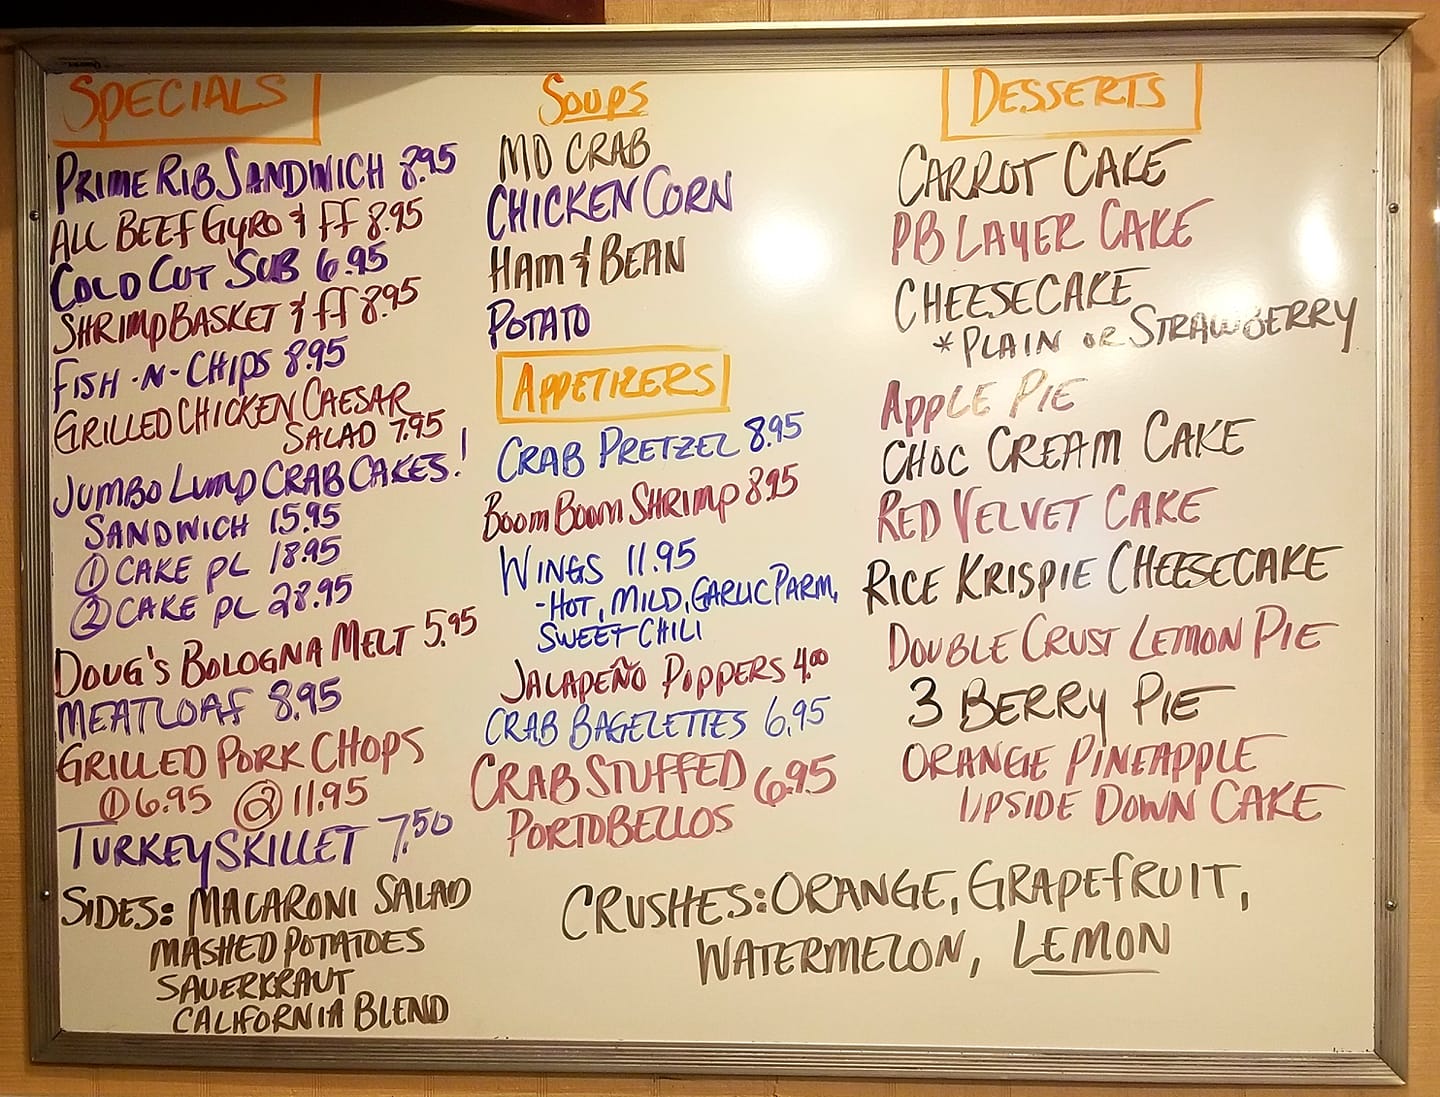 SPECIALS
PRIME RIB SANDWICH 8.95
ALL BEEF GYRO & FF 8.95
COLD CUT SUB 6.95
SHRIMP BASKET & FF 8.95
FISH-N-CHIPS 8.95
GRILLED CHICKEN CAESAR
SALAD 7.95
JUMBO LUMP CRAB CAKES!
SANDWICH 15.95
① CAKE PL 18.95
② CAKE PL 28.95
DOUG'S BOLOGNA MELT 5.95
MEATLOAF 8.95
GRILLED PORK CHOPS
① 6.95 ② 11.95
TURKEY SKILLET 7.50
SIDES: MACARONI SALAD
MASHED POTATOES
SAUERKRAUT
CALIFORNIA BLEND
SOUPS
MD CRAB
CHICKEN CORN
HAM & BEAN
POTATO
APPETIZERS
CRAB PRETZEL 8.95
BOOM BOOM SHRIMP 8.95
WINGS 11.95
-HOT, MILD, GARLIC PARM,
SWEET CHILI
JALAPEÑO POPPERS 4.00
CRAB BAGELETTES 6.95
CRAB STUFFED 6.95
PORTOBELLOS
DESSERTS
CARROT CAKE
PB LAYER CAKE
CHEESECAKE
*PLAIN OR STRAWBERRY
APPLE PIE
CHOC CREAM CAKE
RED VELVET CAKE
RICE KRISPIE CHEESECAKE
DOUBLE CRUST LEMON PIE
3 BERRY PIE
ORANGE PINEAPPLE
UPSIDE DOWN CAKE
CRUSHES: ORANGE, GRAPEFRUIT,
WATERMELON, LEMON